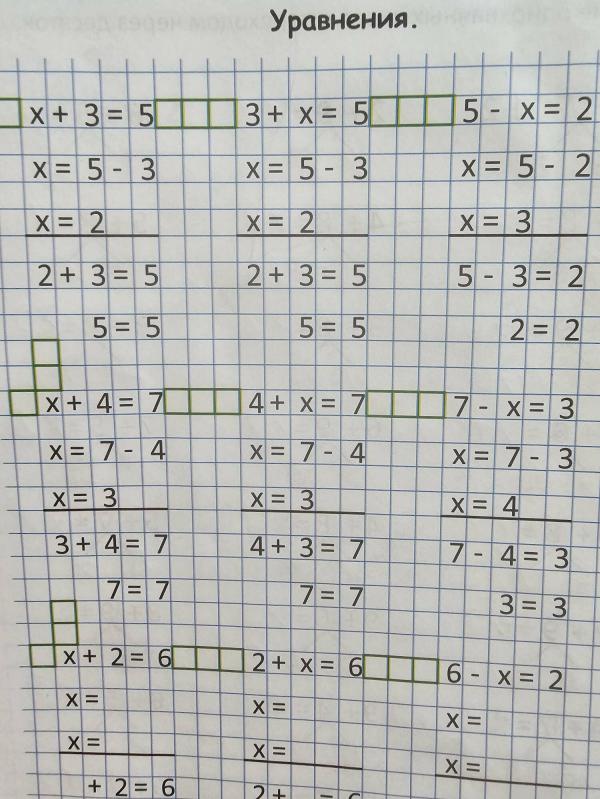 Уравнения.
x + 3 = 5 3 + x = 5 5 - x = 2
x = 5 - 3 x = 5 - 3 x = 5 - 2
x = 2 x = 2 x = 3
2 + 3 = 5 2 + 3 = 5 5 - 3 = 2
5 = 5 5 = 5 2 = 2
x + 4 = 7 4 + x = 7 7 - x = 3
x = 7 - 4 x = 7 - 4 x = 7 - 3
x = 3 x = 3 x = 4
3 + 4 = 7 4 + 3 = 7 7 - 4 = 3
7 = 7 7 = 7 3 = 3
x + 2 = 6 2 + x = 6 6 - x = 2
x = x = x =
x = x = x =
+ 2 = 6 2 + = 6